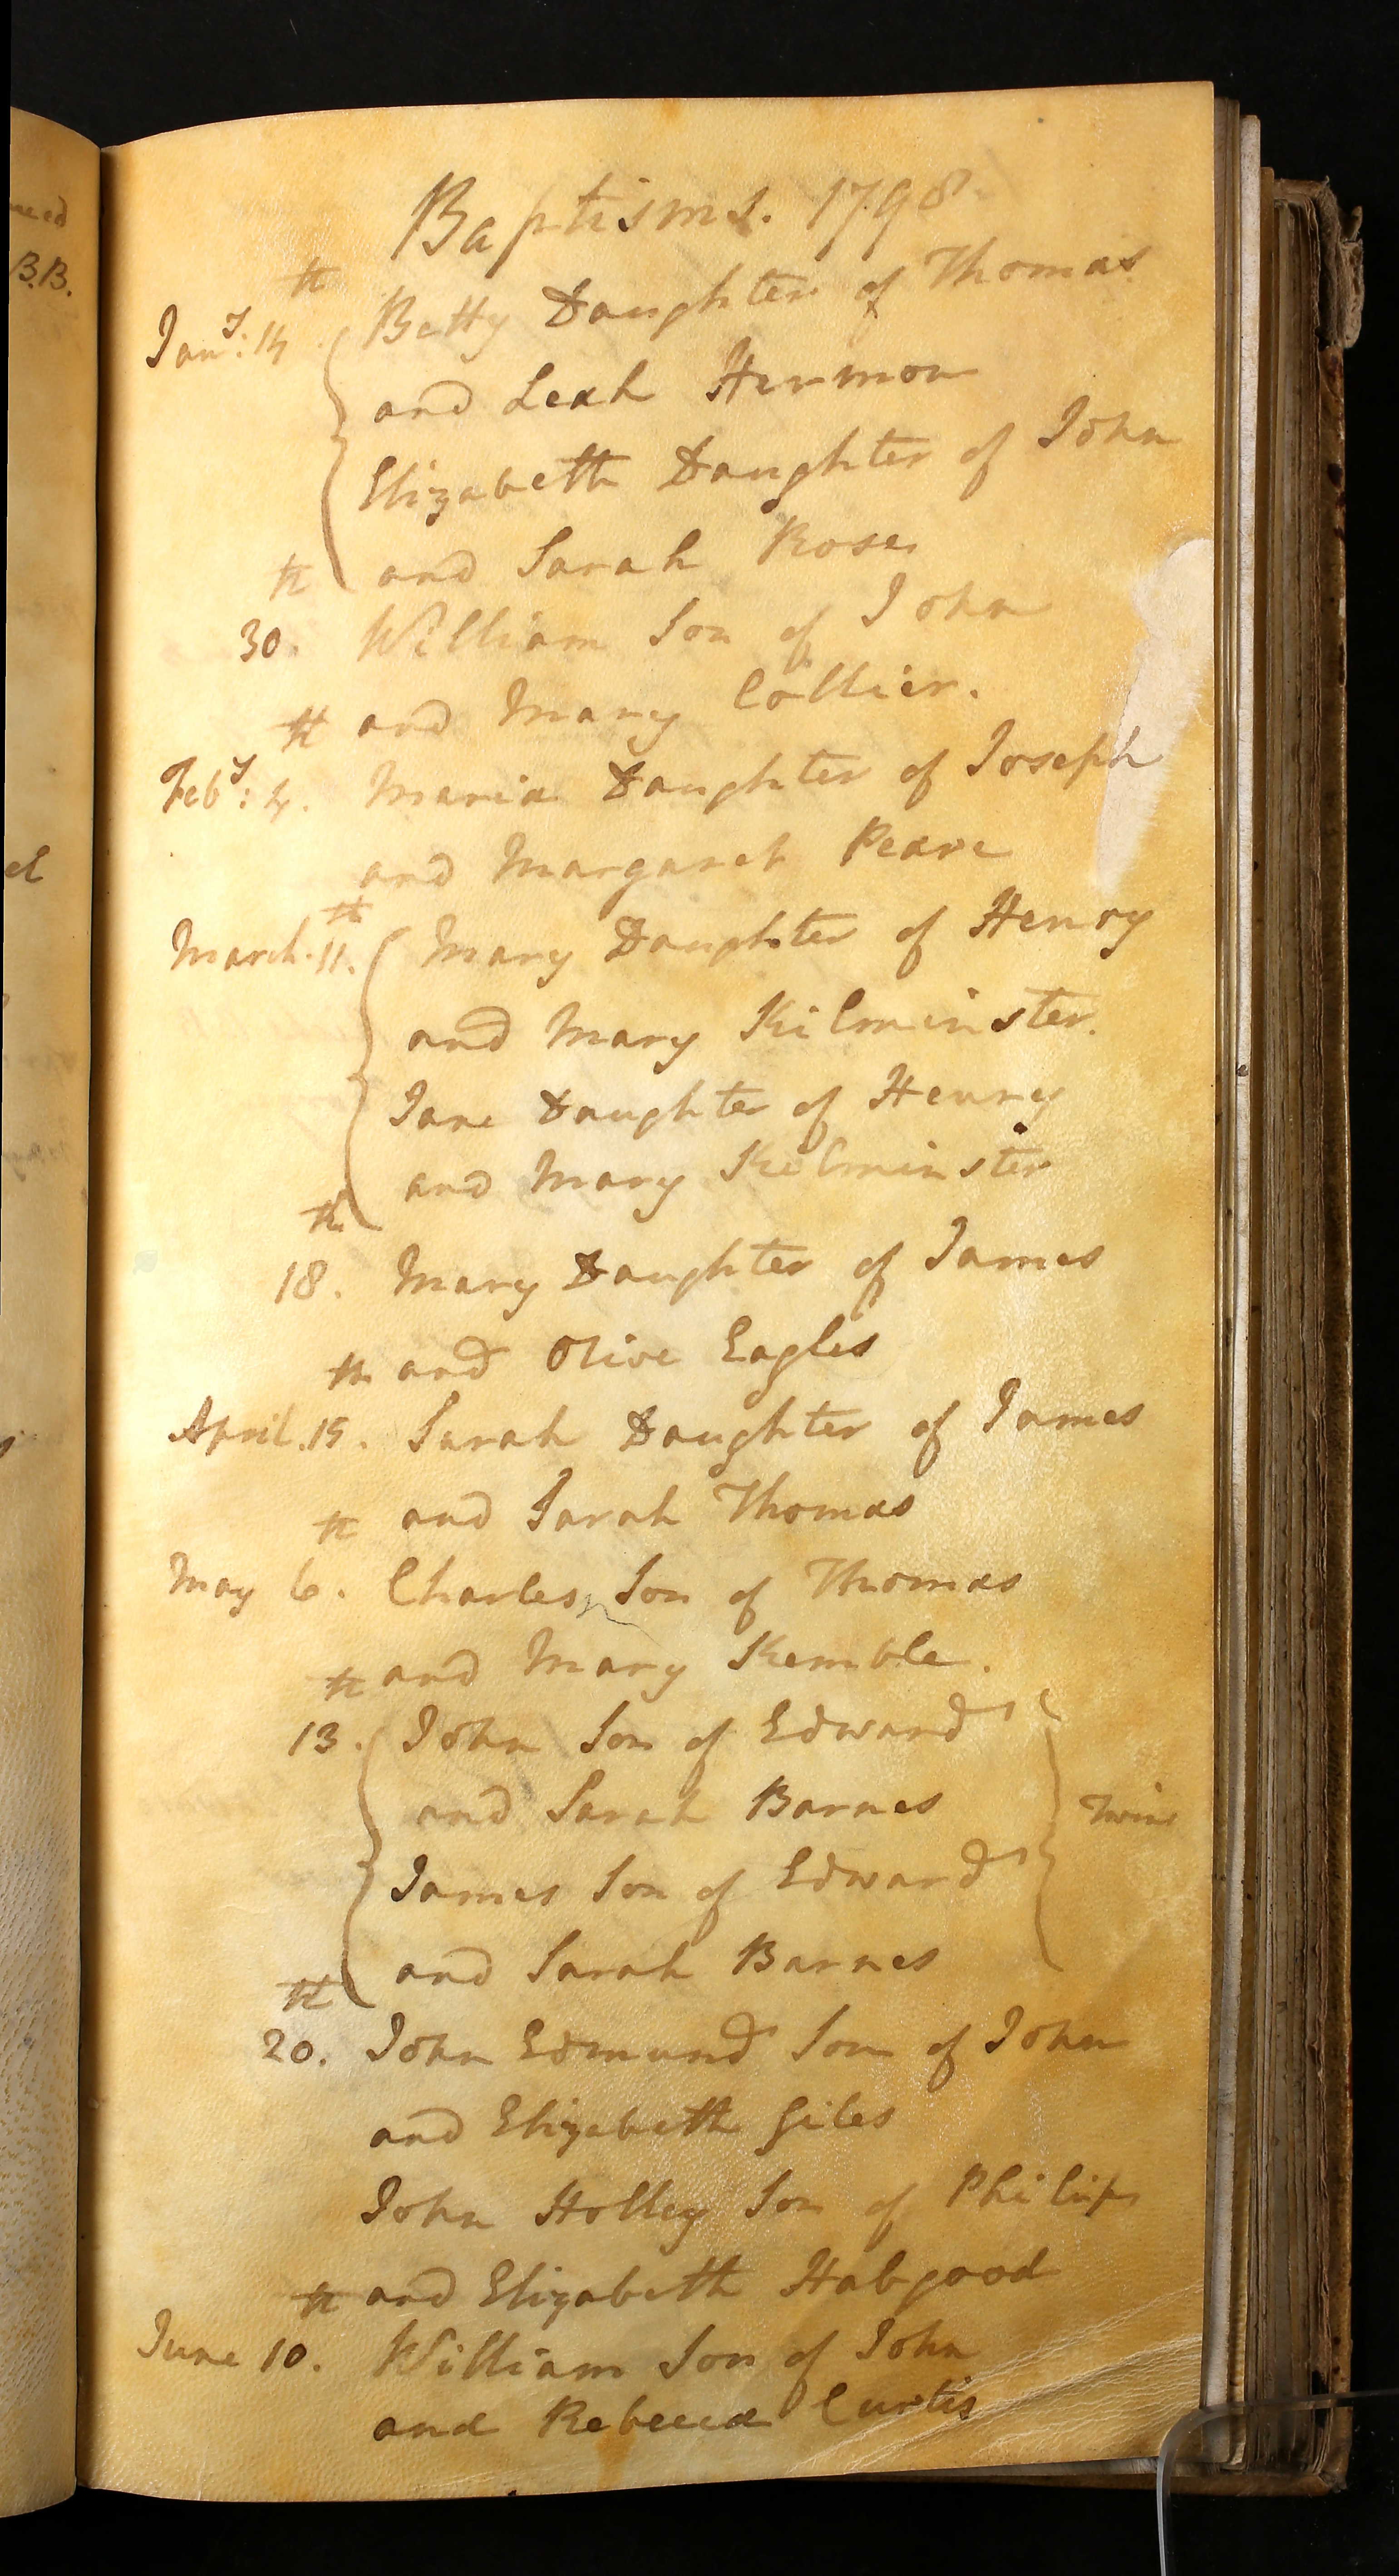 Baptisms. 1798
Jan.y: 14 Betty Daughter of Thomas
and Leah Hermon
Elizabeth Daughter of John
and Sarah Rose
30. William Son of John
and Mary Collier.
Feb.y: 4. Maria Daughter of Joseph
and Margaret Pearce
March. 11. Mary Daughter of Henry
and Mary Kilminster.
Jane Daughter of Henry
and Mary Kilminster
18. Mary Daughter of James
and Olive Eagles
April. 15. Sarah Daughter of James
and Sarah Thomas
May 6. Charles, Son of Thomas
and Mary Kemble.
13. John Son of Edward
and Sarah Barnes
Twins
James Son of Edward
and Sarah Barnes
20. John Edmund Son of John
and Elizabeth Giles
John Holley Son of Philip
and Elizabeth Habgood
June 10. William Son of John
and Rebecca Curtis
B.B.